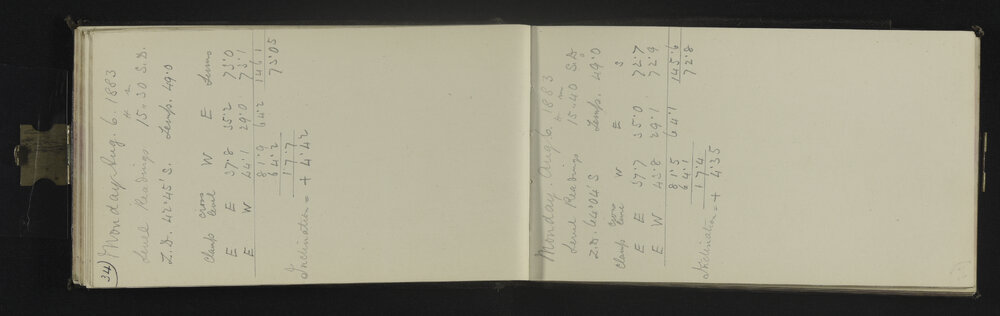 34
Monday Aug. 6. 1883
Level Readings 15h 30m S.D.
Z.D. 42°45' S. Temp. 49.0
Clamp Cross level W E Sums
E E 37.8 35.2 73.0
E W 44.1 29.0 73.1
81.9 64.2 146.1
64.2 73.05
17.7
Inclination = + 4.42
Monday. Aug 6. 1883
Level Readings 15h 40m S.D.
Z.D. 64°04' S Temp. 49.0
Clamp Cross level W E S
E E 37.7 35.0 72.7
E W 43.8 29.1 72.9
81.5 64.1 145.6
64.1 72.8
17.4
Inclination = + 4.35